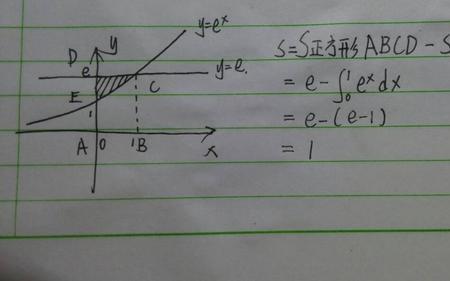 y=eˣ
D
y
e
y=e.
E
C
1
A
0
1B
x
S=S正方形ABCD-S
=e-∫₀¹eˣdx
=e-(e-1)
=1